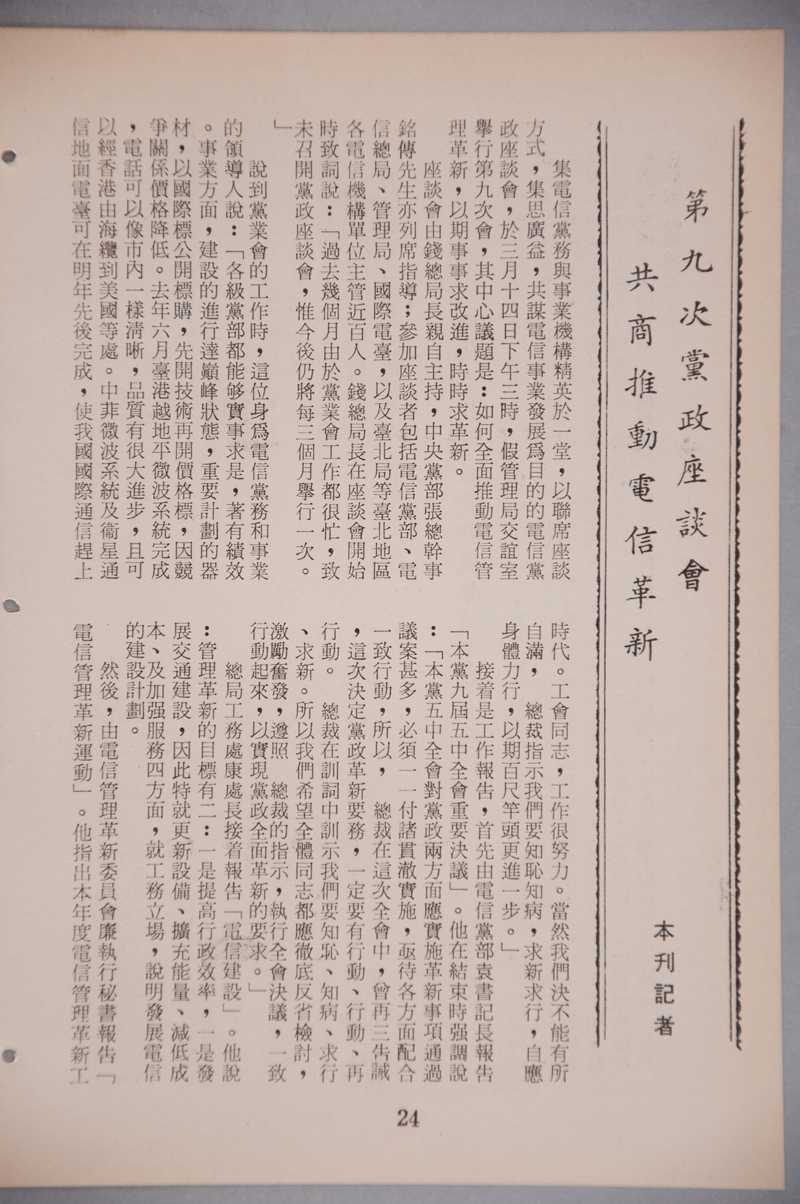 第九次黨政座談會
共商推動電信革新
本刊記者
集電信黨務與事業機構精英於一堂，以聯席座談
方式，集思廣益，共謀電信事業發展爲目的的電信黨
政座談會，於三月十四日下午三時，假管理局交誼室
舉行第九次會，其中心議題是：如何全面推動電信管
理革新，以期事事求改進，時時求革新。
座談會由錢總局長親自主持，中央黨部張總幹事
銘傳先生亦列席指導；參加座談者包括電信黨部、電
信總局、管理局、國際電臺，以及臺北局等臺北地區
各電信機構單位主管近百人。錢總局長在座談會開始
時致詞說：「過去幾個月由於黨業會工作都很忙，致
未召開黨政座談會，惟今後仍將每三個月舉行一次。
」
說到黨業會的工作時，這位身爲電信黨務和事業
的領導人說：「各級黨部都能够實事求是，著有績效
。事業方面，建設的進行達巔峰狀態，重要計劃的器
材，以國際標公開標購，先開技術再開價格標，因競
爭關係價格降低。去年六月臺港越地平微波系統完成
，電話可以像市內一樣清晰，品質有很大進步，且可
以經香港由海纜到美國等處。中菲微波系統及衞星通
信地面電臺可在明年先後完成，使我國國際通信趕上
時代。工會同志，工作很努力。當然我們決不能有所
自滿，　總裁指示我們要知恥知病，求新求行，自應
身體力行，以期百尺竿頭更進一步。」
接着是工作報告，首先由電信黨部袁書記長報告
「本黨九屆五中全會重要決議」。他在結束時强調說
：「本黨五中全會對黨政兩方面應實施革新事項通過
議案甚多，必須一一付諸貫澈實施，亟待各方面配合
一致行動，所以，　總裁在這次全會中，曾再三告誡
，這次決定黨政革新要務，一定要有行動、行動、再
行動。　總裁在訓詞中訓示我們要知恥、知病、求行
、求新。所以我們希望全體同志都應徹底反省檢討，
激勵奮發，遵照　總裁的指示，執行全會決議，一致
行動起來，以實現黨政全面革新的要求。」
總局工務處康處長接着報告「電信建設」。他說
：管理革新的目標有二：一是提高行政效率，一是發
展交通建設，因此特就更新設備、擴充能量、減低成
本、及加强服務四方面，就工務立場，說明發展電信
的建設計劃。
然後，由電信管理革新委員會廉執行秘書報告「
電信管理革新運動」。他指出本年度電信管理革新工
24